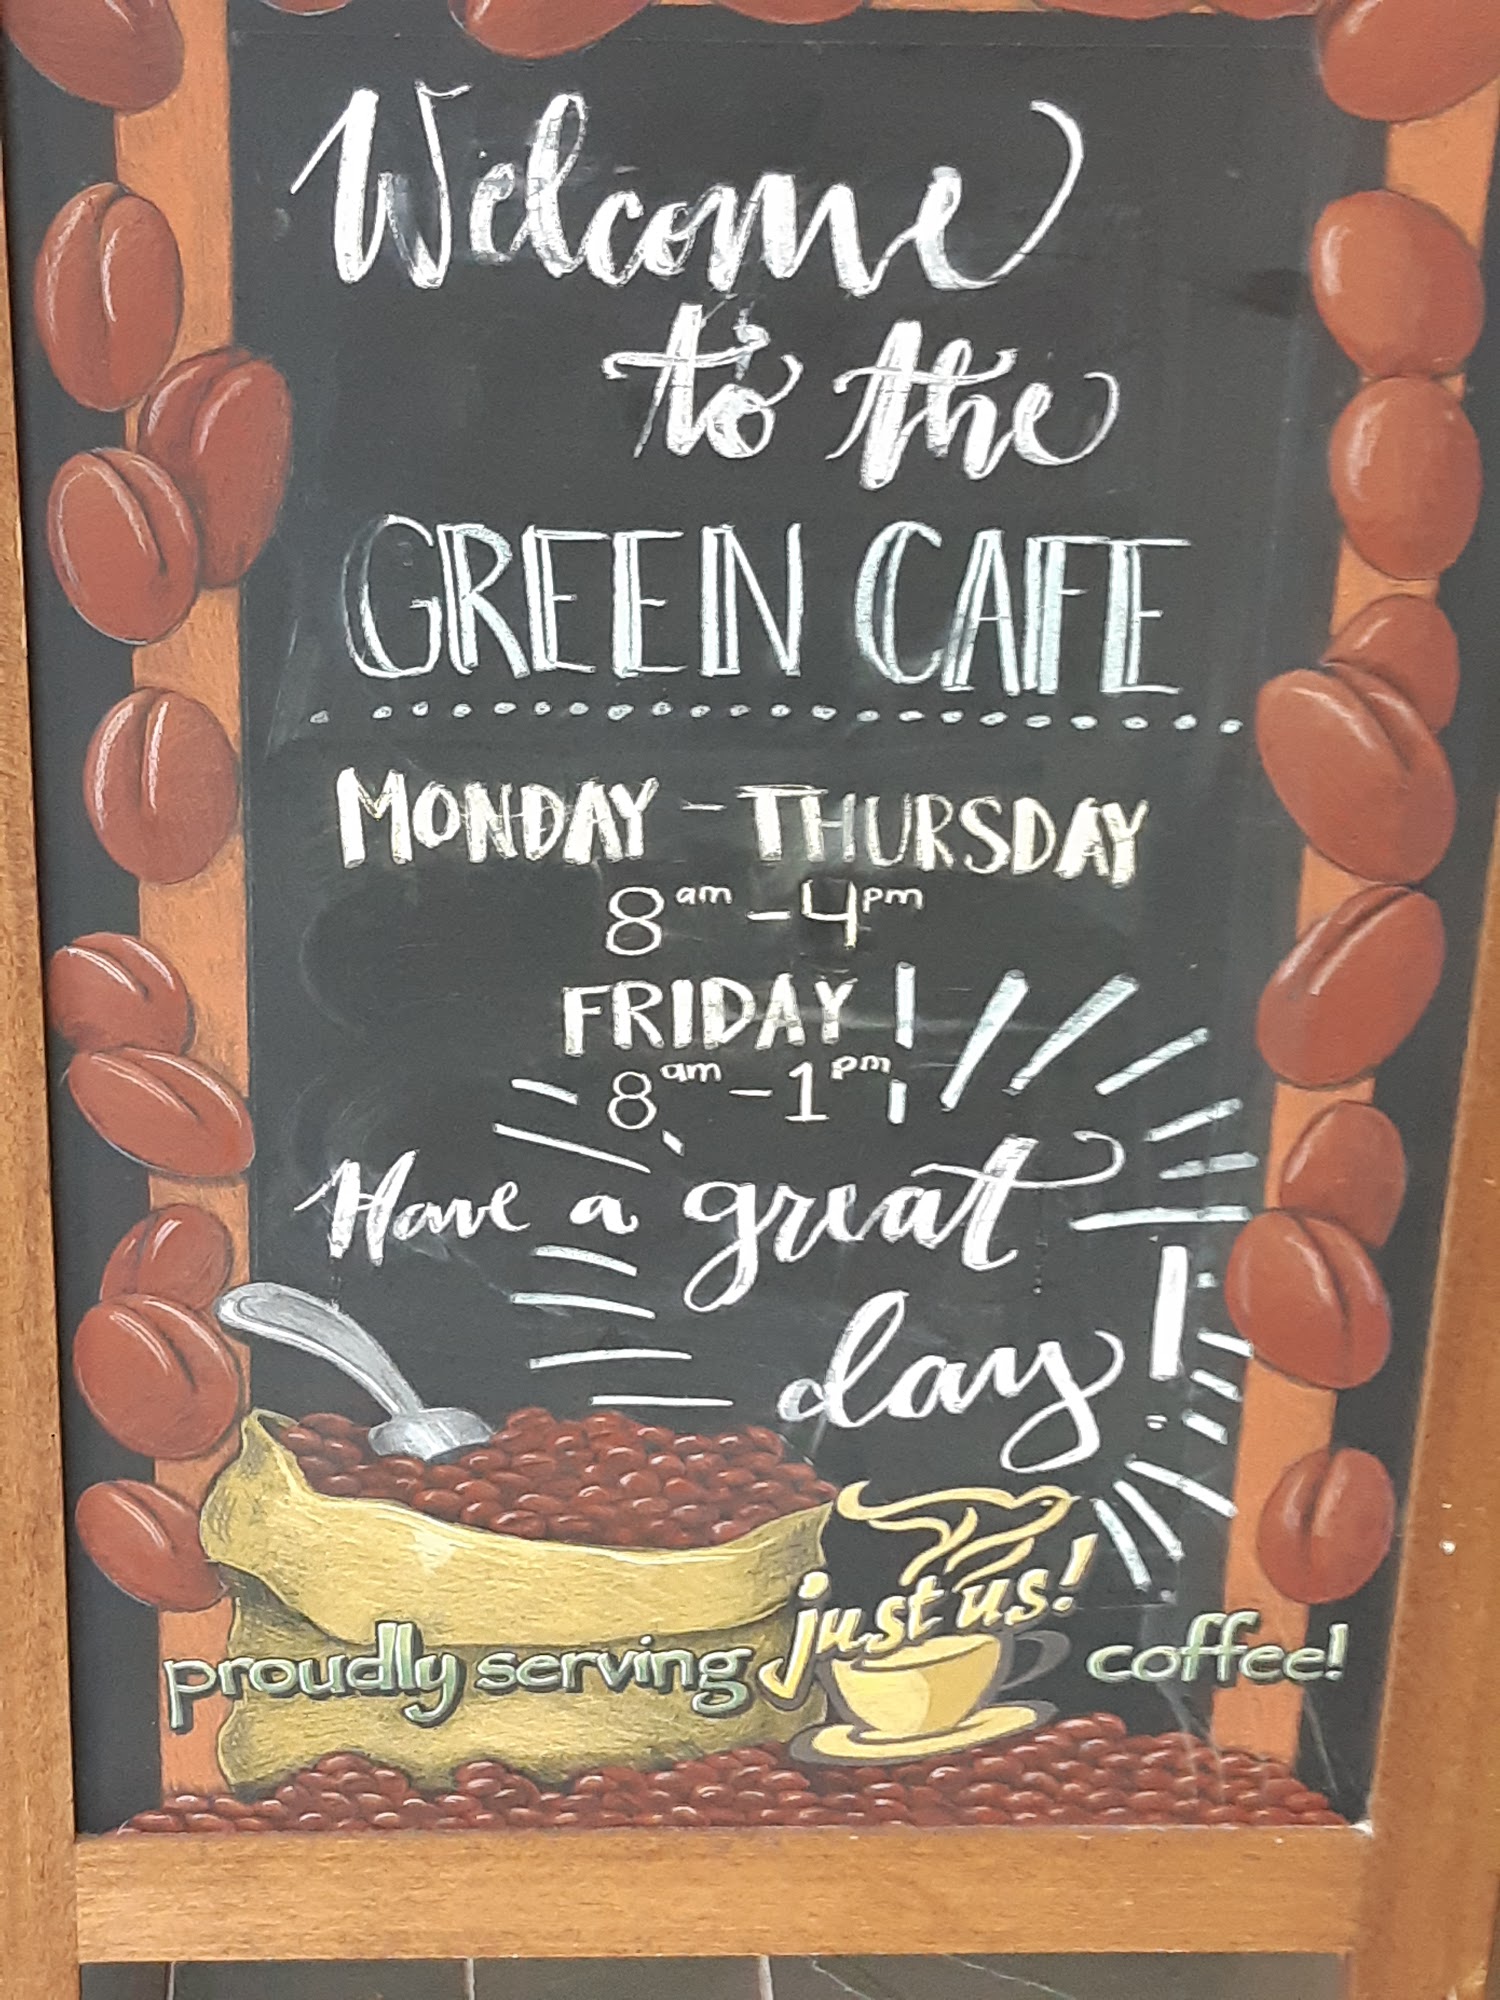 Welcome
to the
GREEN CAFE
MONDAY - THURSDAY
8am - 4pm
FRIDAY
8am - 1pm
Have a great
day!
proudly serving just us! coffee!